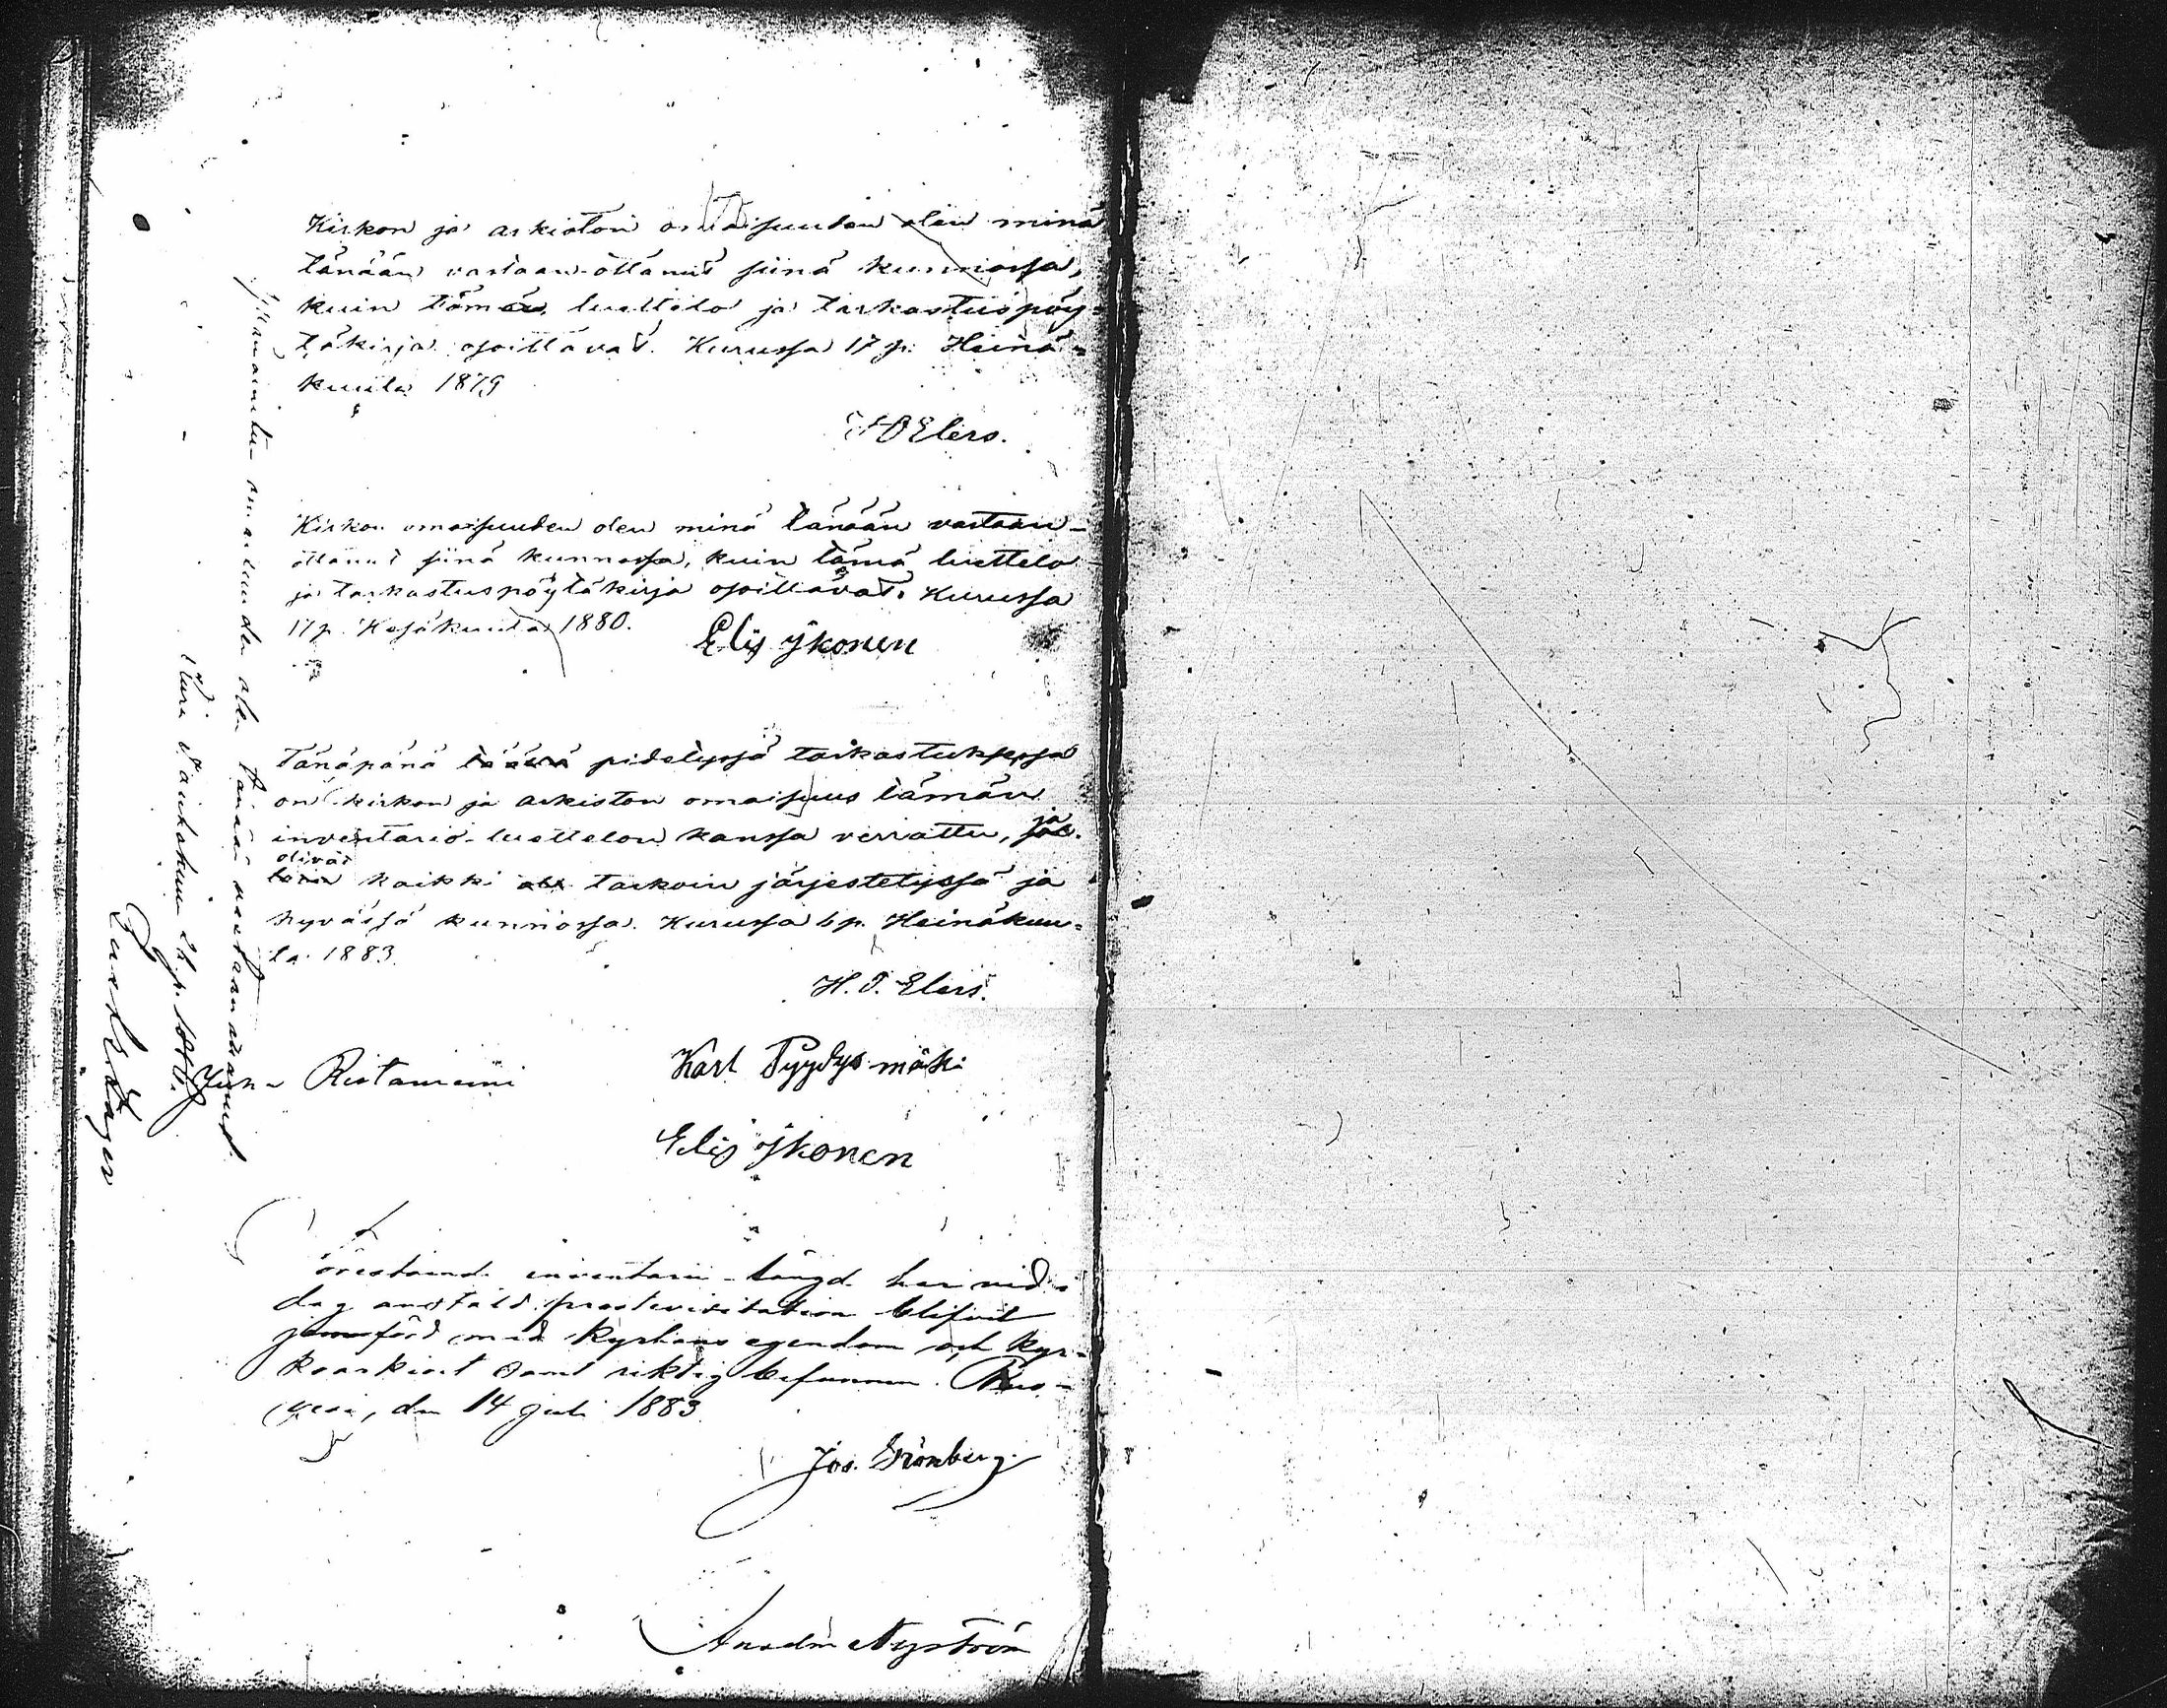 Kirkon ja arkiston omaisuuden olen minä
tänään vastaan-ottanut siinä kunnossa,
kuin tämän luettelo ja tarkastuspöy-
täkirja osoittavat. Kurussa 17 p. Heinä-
kuuta 1879
H O Elers.
Kirkon omaisuuden olen minä tänään vastaan-
ottanut siinä kunnossa, kuin tämä luettelo
ja tarkastuspöytäkirja osoittavat. Kurussa
17 p. Kesäkuuta 1880.
Elis Ikonen
Tänäpänä pidetyssä tarkastuksessa
on kirkon ja arkiston omaisuus tämän
inventario-luettelon kanssa verrattu, ja
olivat kaikki tarkoin järjestetyssä ja
hyvässä kunnossa. Kurussa 6 p. Heinäkuu-
ta 1883.
H. O. Elers.
Juha Ristaniemi
Karl Pyydysmäki
Elis Ikonen
Förestående inventarii-längd har vid i
dag anstäld prostvisitation blifvit
jemnförd med kyrkans egendom och kyr-
koarkivet samt riktig befunnen. Ruo-
vesi, den 14 Juli 1883
Jos. Grönberg
Anselm Nyström
Yllämainitun omaisuuden olen tänään vastaanottanut.
Kuru Toukokuun p.